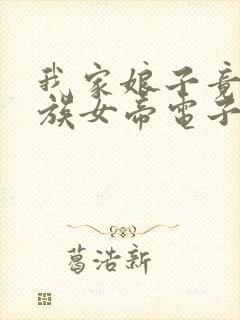 我家娘子竟
族女帝電子
葛浩新